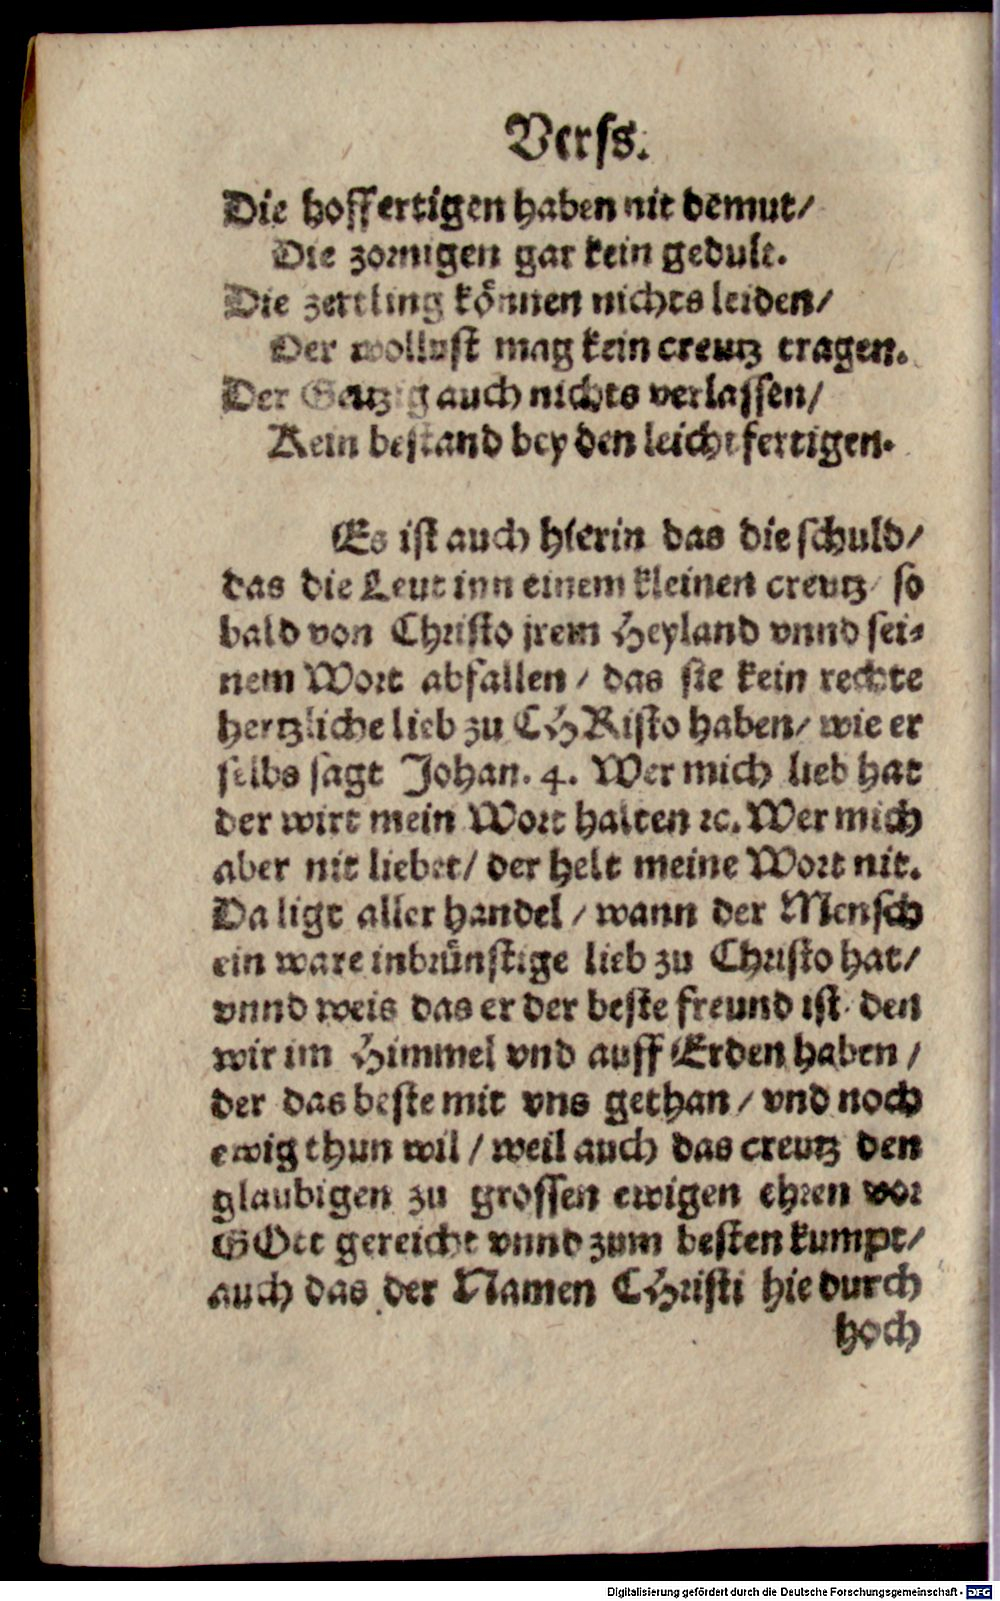 Verss.
Die hoffertigen haben nit demut/
Die zornigen gar kein gedult.
Die zertling können nichts leiden/
Der wollust mag kein creutz tragen.
Der Geitzig auch nichts verlassen/
Kein bestand bey den leichtfertigen.
Es ist auch hierin das die schuld/
das die Leut inn einem kleinen creutz/ so
bald von Christo jrem Heyland vnnd sei-
nem Wort abfallen/ das sie kein rechte
hertzliche lieb zu CHRisto haben/ wie er
selbs sagt Johan. 4. Wer mich lieb hat
der wirt mein Wort halten ꝛc. Wer mich
aber nit liebet/ der helt meine Wort nit.
Da ligt aller handel/ wann der Mensch
ein ware inbrünstige lieb zu Christo hat/
vnnd weis das er der beste freund ist den
wir im Himmel vnd auff Erden haben/
der das beste mit vns gethan/ vnd noch
ewig thun wil/ weil auch das creutz den
glaubigen zu grossen ewigen ehren vor
GOtt gereicht vnnd zum besten kumpt/
auch das der Namen CHristi hie durch
hoch
Digitalisierung gefördert durch die Deutsche Forschungsgemeinschaft - DFG